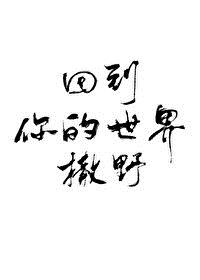 回到
你的世界
撒野